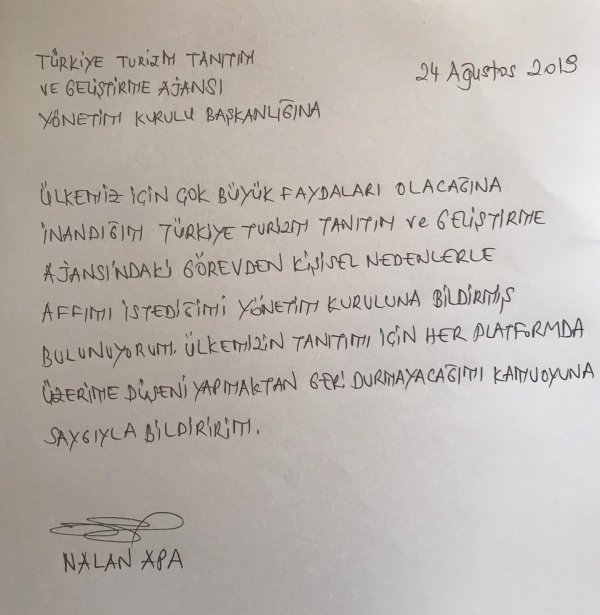 TÜRKİYE TURİZM TANITIM
24 Ağustos 2019
VE GELİŞTİRME AJANSI
YÖNETİM KURULU BAŞKANLIĞINA
ÜLKEMİZ İÇİN ÇOK BÜYÜK FAYDALARI OLACAĞINA
İNANDIĞIM TÜRKİYE TURİZM TANITIM VE GELİŞTİRME
AJANSI'NDAKİ GÖREVDEN KİŞİSEL NEDENLERLE
AFFIMI İSTEDİĞİMİ YÖNETİM KURULUNA BİLDİRMİŞ
BULUNUYORUM. ÜLKEMİZİN TANITIMI İÇİN HER PLATFORMDA
ÜZERİME DÜŞENİ YAPMAKTAN GERİ DURMAYACAĞIMI KAMUOYUNA
SAYGIYLA BİLDİRİRİM.
NALAN APA